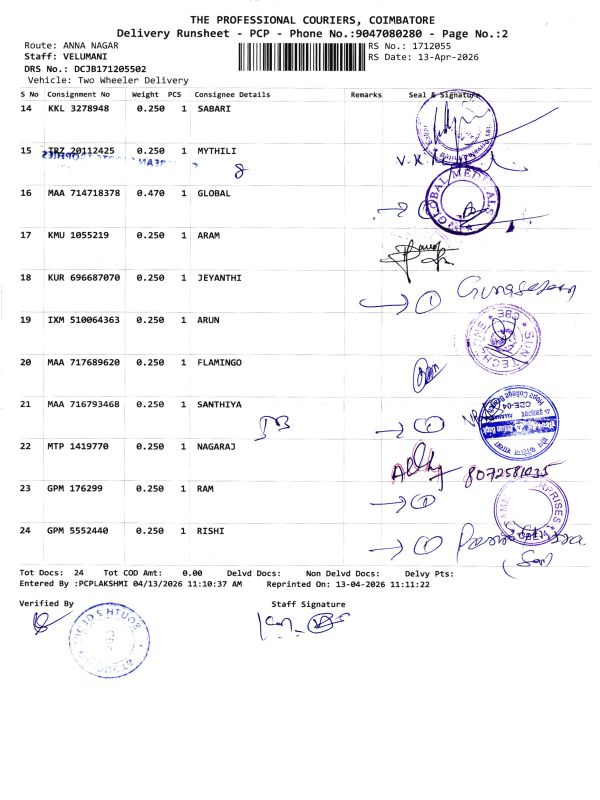 THE PROFESSIONAL COURIERS, COIMBATORE
Delivery Runsheet - PCP - Phone No.:9047080280 - Page No.:2
Route: ANNA NAGAR
RS No.: 1712055
Staff: VELUMANI
RS Date: 13-Apr-2026
DRS No.: DCJB171205502
Vehicle: Two Wheeler Delivery
S No Consignment No Weight PCS Consignee Details Remarks Seal & Signature
14 KKL 3278948 0.250 1 SABARI
15 TRZ 20112425 0.250 1 MYTHILI
V.K
16 MAA 714718378 0.470 1 GLOBAL
GLOBAL MEDICALS
17 KMU 1055219 0.250 1 ARAM
18 KUR 696687070 0.250 1 JEYANTHI
1 Gunasekaran
19 IXM 510064363 0.250 1 ARUN
SUN TECH ZONE
CBE
20 MAA 717689620 0.250 1 FLAMINGO
21 MAA 716793468 0.250 1 SANTHIYA
1
CBE-04
Hope College Branch
22 MTP 1419770 0.250 1 NAGARAJ
8072581035
23 GPM 176299 0.250 1 RAM
1
24 GPM 5552440 0.250 1 RISHI
1
Tot Docs: 24 Tot COD Amt: 0.00 Delvd Docs: Non Delvd Docs: Delvy Pts:
Entered By :PCPLAKSHMI 04/13/2026 11:10:37 AM Reprinted On: 13-04-2026 11:11:22
Verified By
Staff Signature